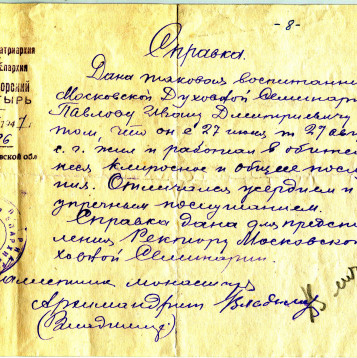 - 8 -
атриархия
Епархия
орский
ТЫРЬ
Справка.
Дана таковая воспитанни
Московской Духовной Семинар
Павлову Ивану Дмитриевичу
том, что он с 27 июня, по 27 авг
с. г. жил и работал в обител
неся клиросное и общее послу
ния. Отличался усердием и
упречным послушанием.
Справка дана для предста
ления Ректору Московско
ховной Семинарии.
наместник монастыря
Архимандрит Владимир
(Владимир)